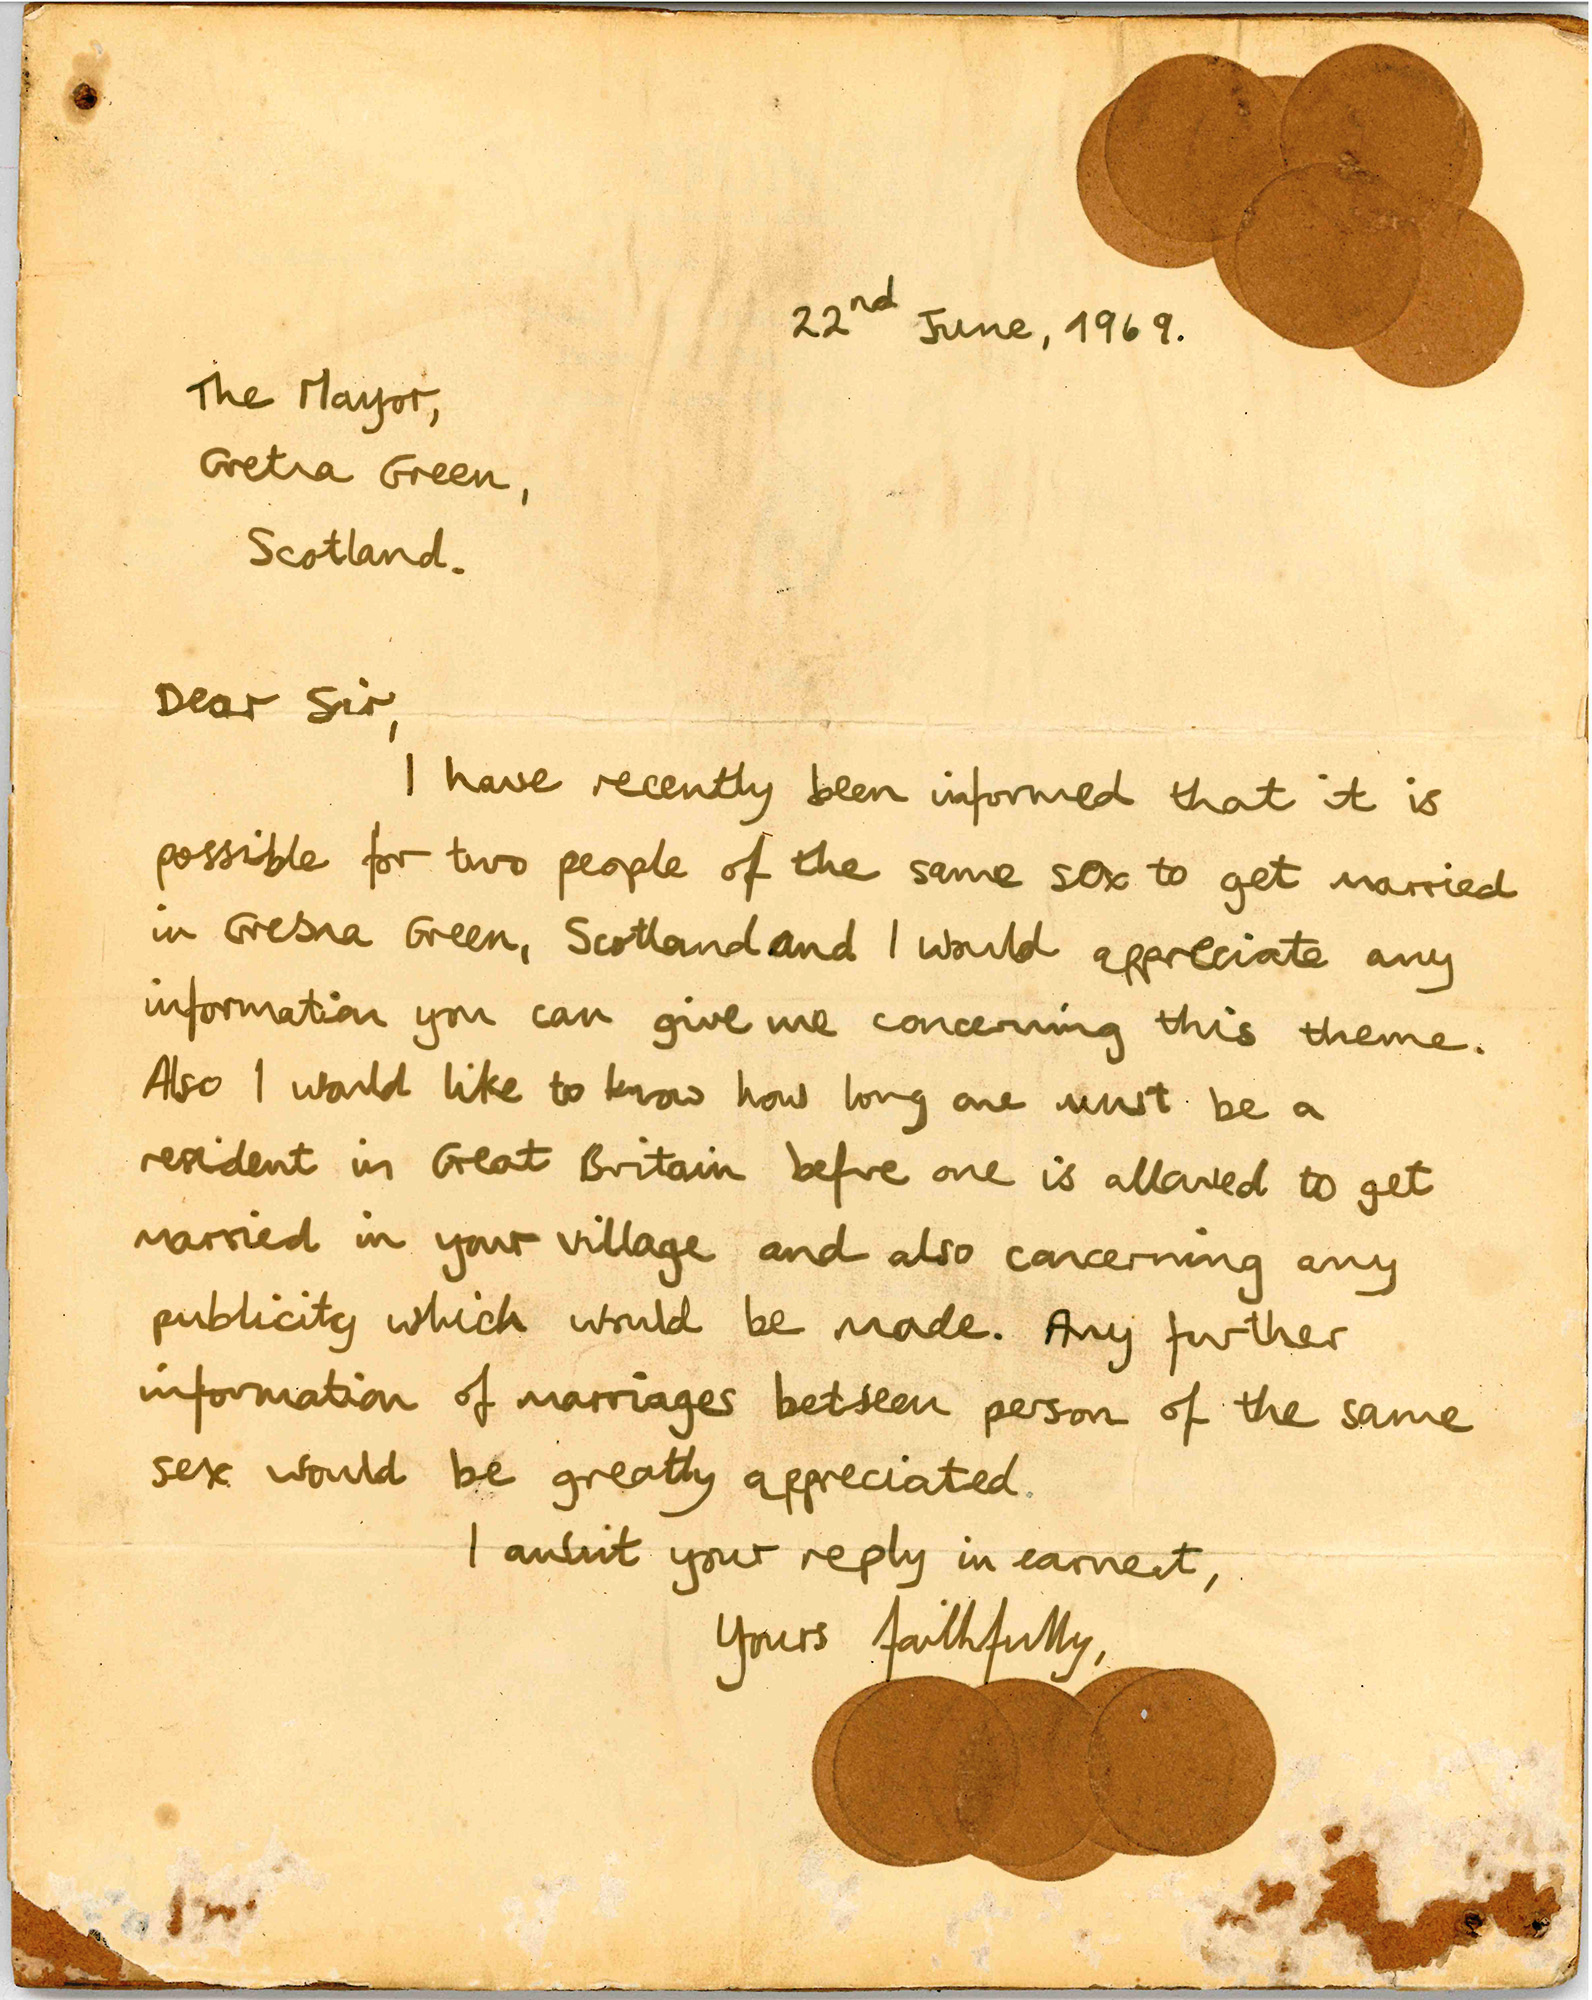 22nd June, 1969.
The Mayor,
Gretna Green,
Scotland.
Dear Sir,
I have recently been informed that it is
possible for two people of the same sex to get married
in Gretna Green, Scotland and I would appreciate any
information you can give me concerning this theme.
Also I would like to know how long one must be a
resident in Great Britain before one is allowed to get
married in your village and also concerning any
publicity which would be made. Any further
information of marriages between person of the same
sex would be greatly appreciated.
I await your reply in earnest,
Yours faithfully,